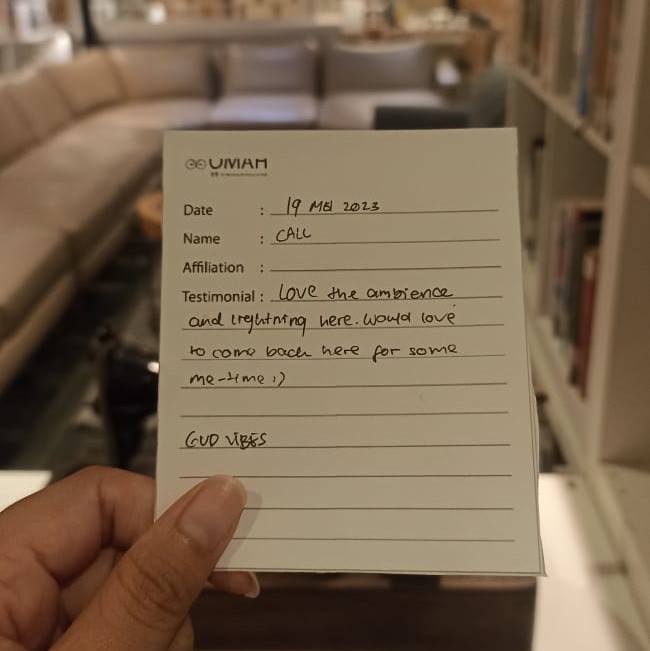 UMAH
Date : 19 MEI 2023
Name : CALL
Affiliation :
Testimonial : Love the ambience
and lightning here. Would love
to come back here for some
me-time :)
GUD VIBES